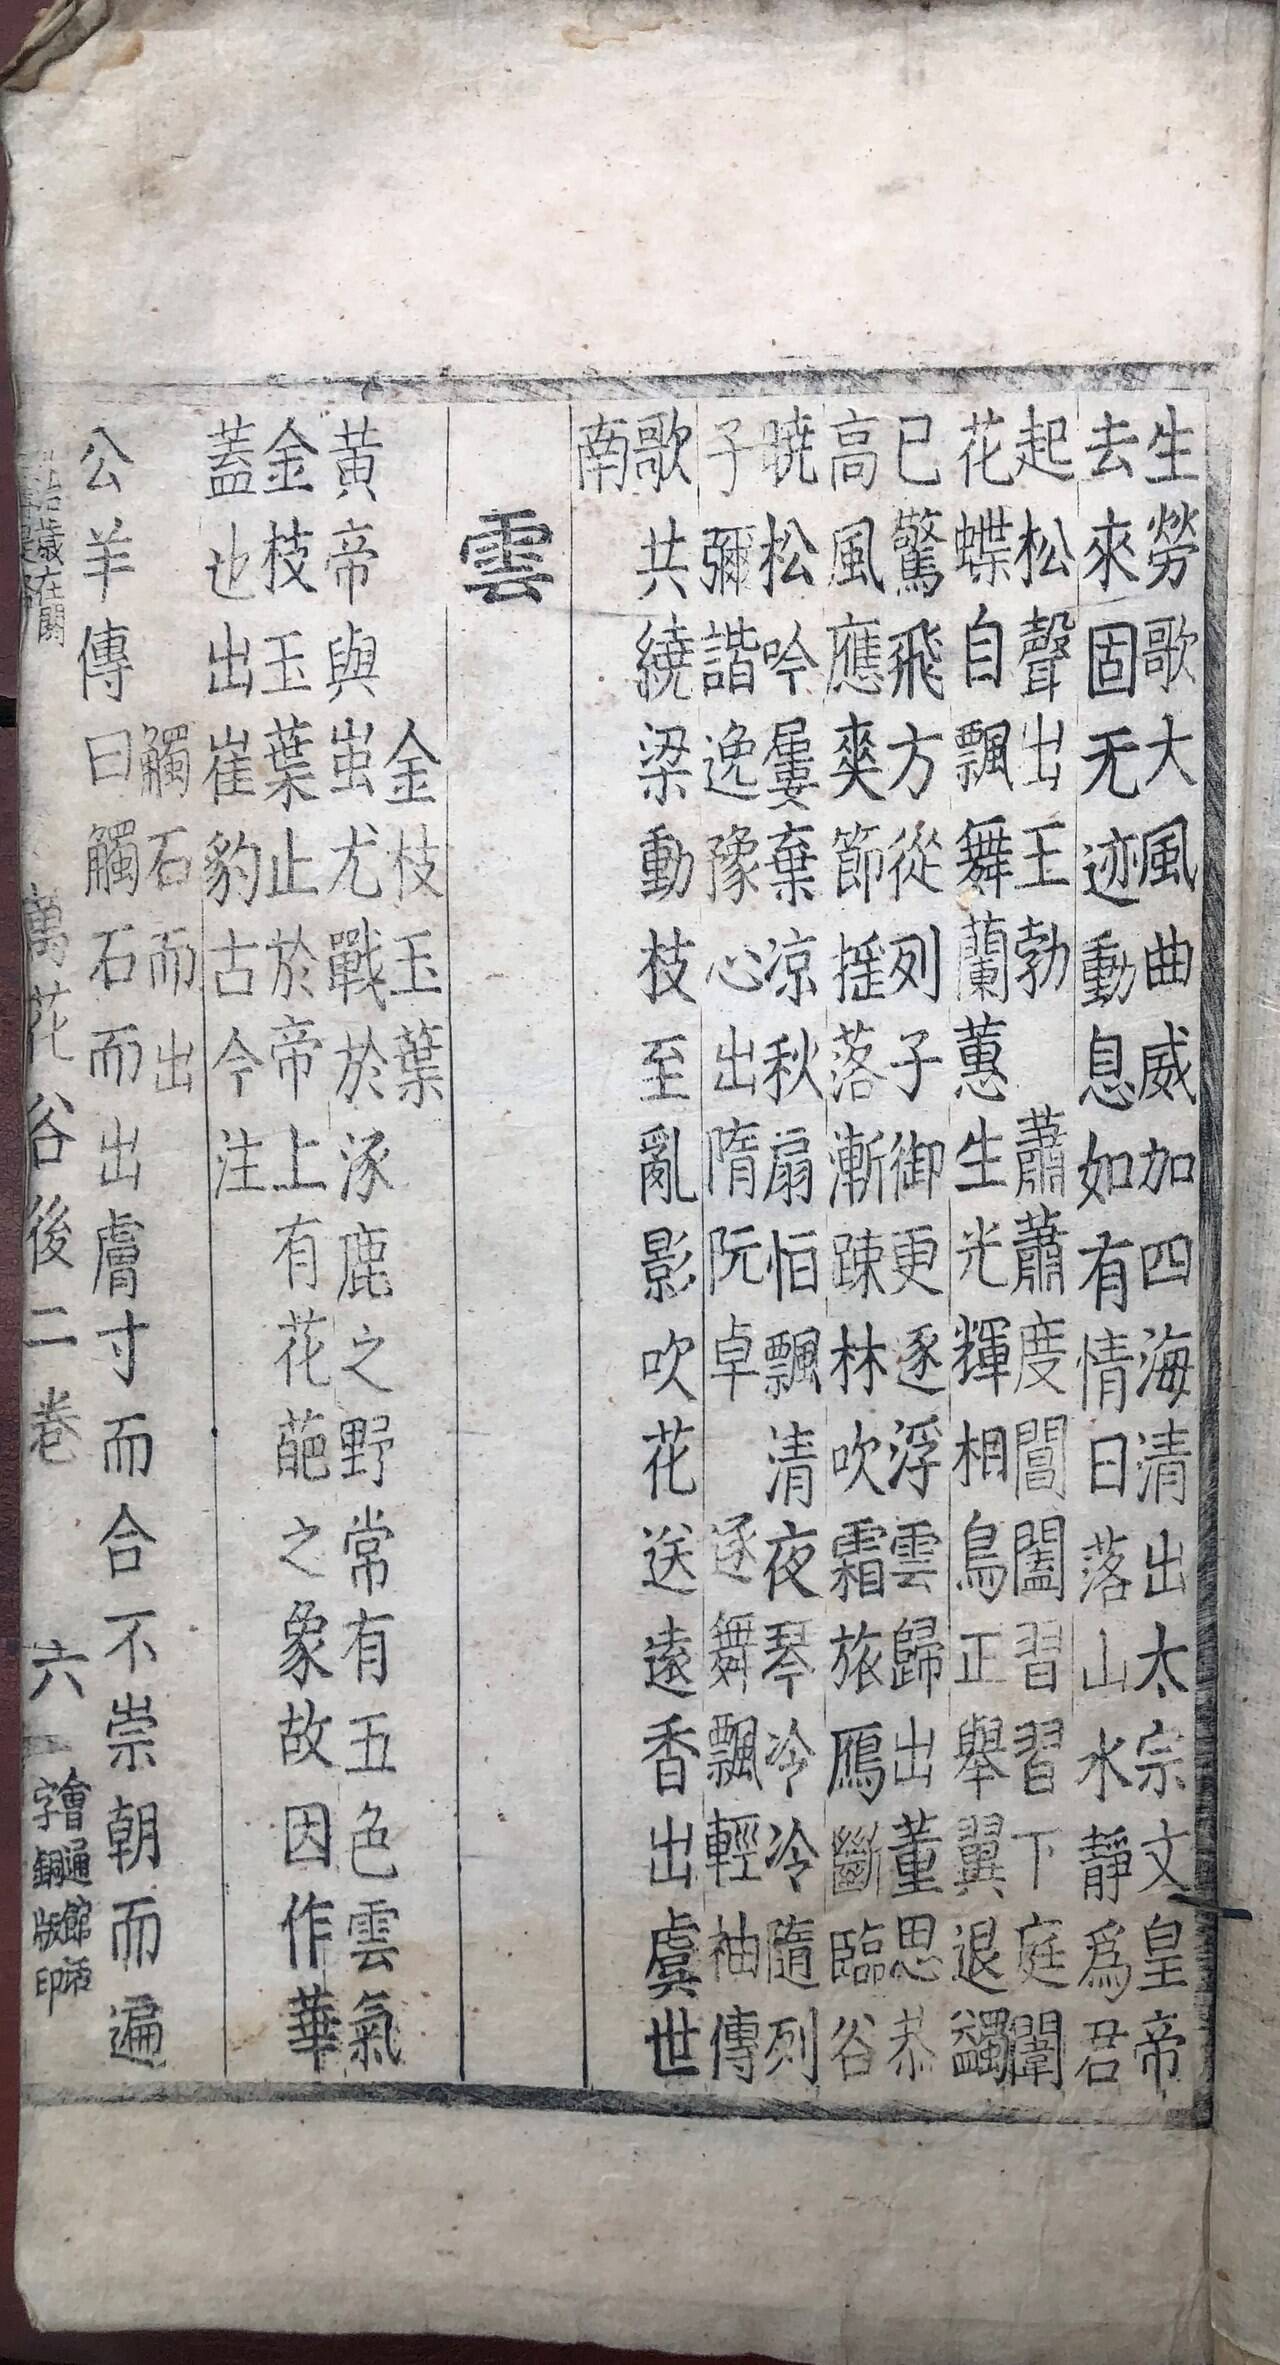 生勞歌大風曲威加四海清出太宗文皇帝
去來固无迹動息如有情日落山水靜爲君
起松聲出王勃　蕭蕭度閶闔習習下庭闈
花蝶自飄舞蘭蕙生光輝相鳥正舉翼退鷁
已驚飛方從列子御更逐浮雲歸出董思恭
高風應爽節摇落漸踈林吹霜旅鴈斷臨谷
曉松吟屢棄凉秋扇恒飄清夜琴冷冷隨列
子彌諧逸豫心出隋阮卓　逐舞飄輕袖傳
歌共繞梁動枝至亂影吹花送遠香出虞世
南
雲
金枝玉葉
黄帝與蚩尤戰於涿鹿之野常有五色雲氣
金枝玉葉止於帝上有花葩之象故因作華
蓋也出崔豹古今注
觸石而出
公羊傳曰觸石而出膚寸而合不崇朝而遍
歲在
萬花谷後二卷
六
會通館活
字銅版印